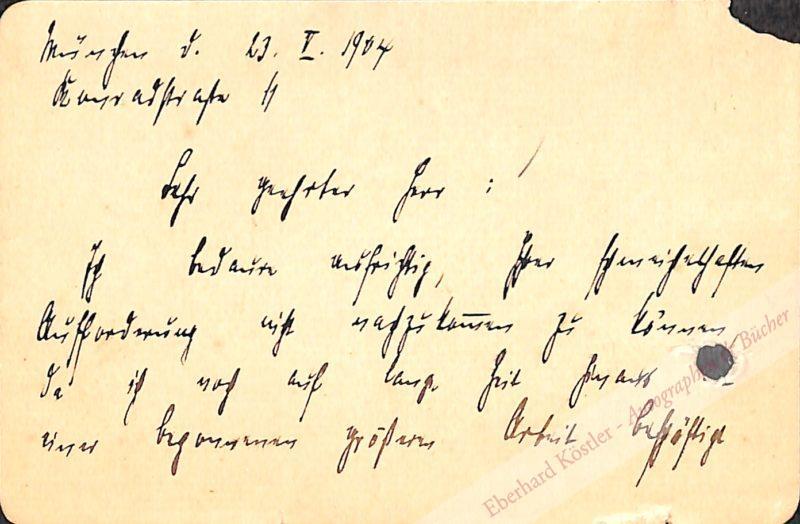 München d. 23. V. 1904
Konradstraße 11
Sehr geehrter Herr :
Ich bedaure aufrichtig, Ihrer schmeichelhaften
Aufforderung nicht nachzukommen zu können
da ich noch auf lange Zeit hinaus
einer begonnenen größeren Arbeit beschäftigt
Eberhard Köstler - Autographen & Bücher